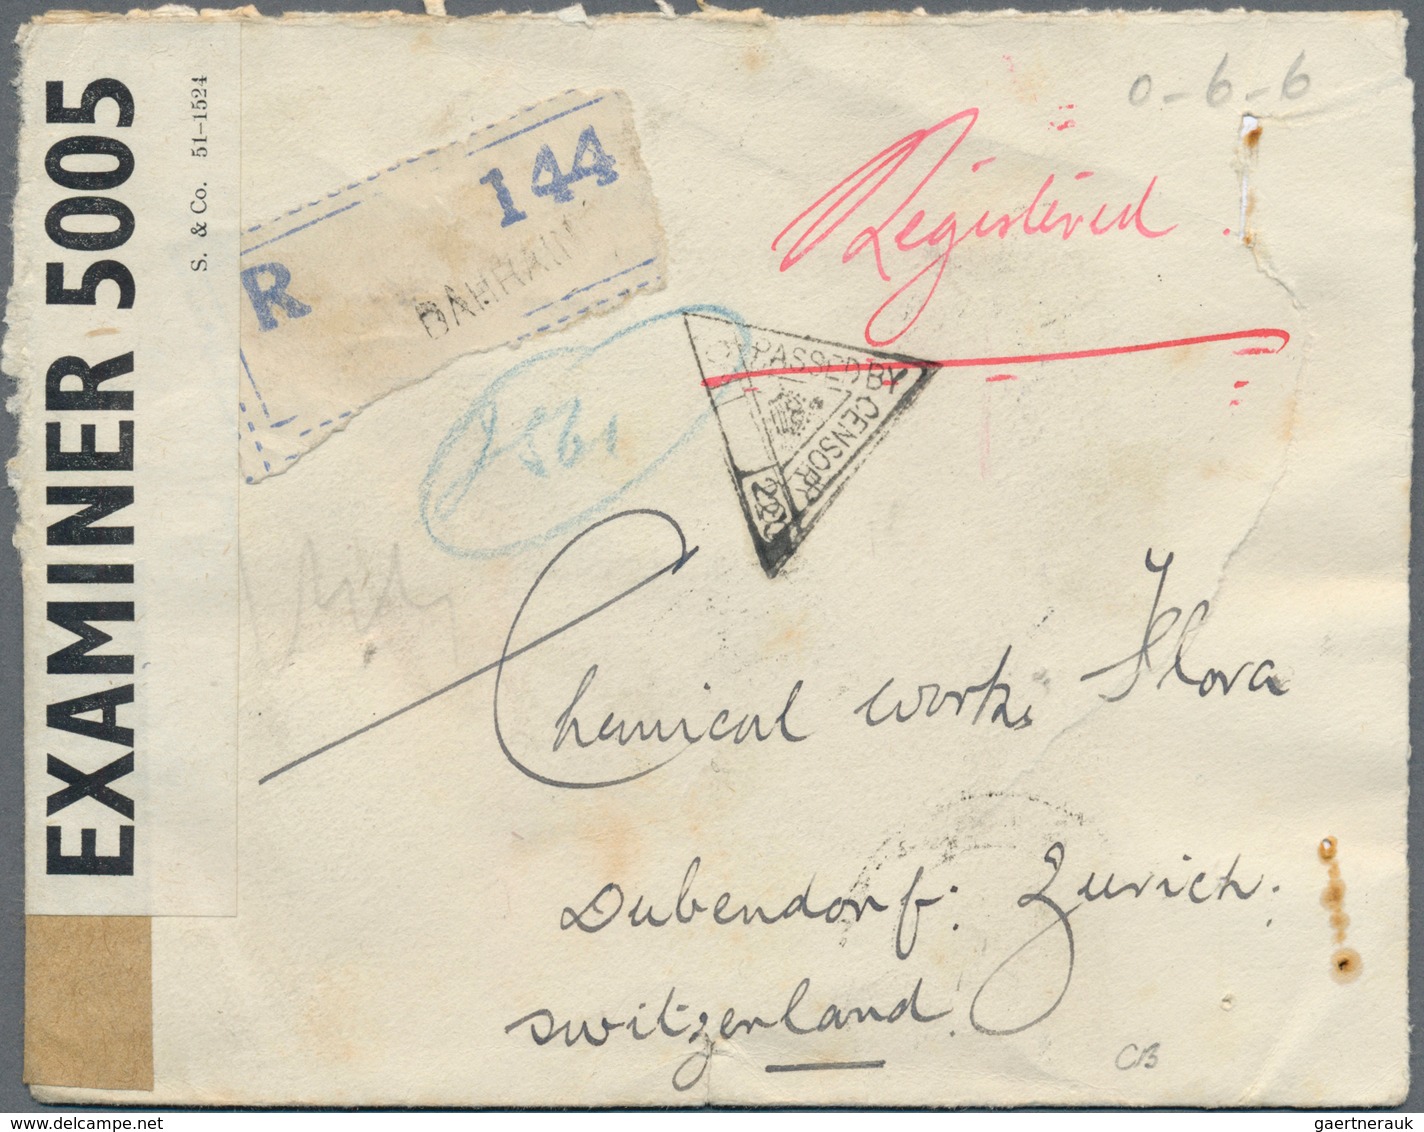 EXAMINER 5005
S. & Co. 51-1524
R
144
BAHRAIN
0-6-6
Registered.
PASSED BY
CENSOR
Chemical works Flora
Dubendorf: Zurich.
Switzerland.
CB
gaertnerauk